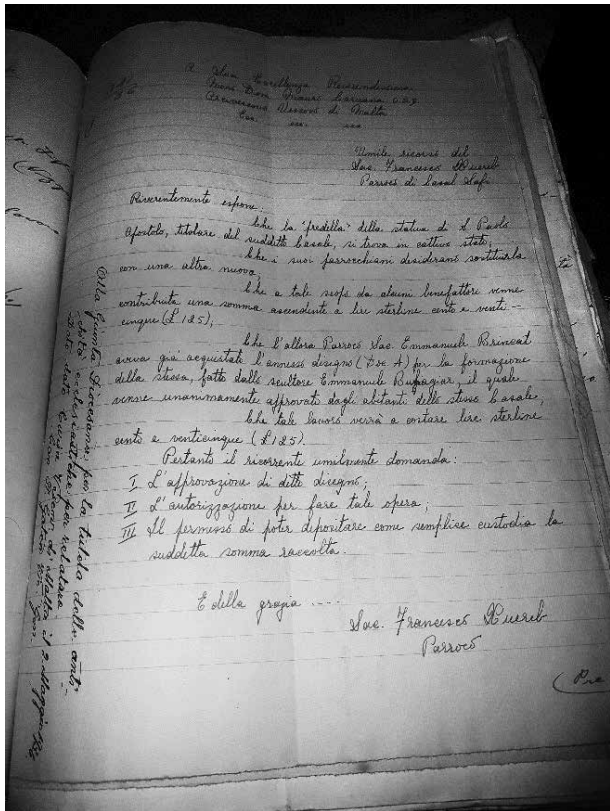 A Sua Eccellenza Reverendissima
Mons. Dom Mauro Caruana O.S.B.
Arcivescovo Vescovo di Malta
Ecc. ecc. ecc.
Umile ricorso del
Sac. Francesco Xuereb
Parroco di Casal Safi
Riverentemente espone:
Che la "predella" della statua di S. Paolo
Apostolo, titolare del suddetto Casale, si trova in cattivo stato;
Che i suoi parrocchiani desiderano sostituirla
con una altra nuova
Che a tale scopo da alcuni benefattori venne
contribuita una somma ascendente a lire sterline cento e venti-
cinque (£125),
Che l'allora Parroco Sac. Emmanuele Brincat
aveva già acquistato l'annesso disegno (Doc A) per la formazione
della stessa, fatto dallo scultore Emmanuele Buhagiar, il quale
venne unanimamente approvato dagli abitanti dello stesso Casale,
Che tale lavoro verrà a costare lire sterline
cento e venticinque (£125).
Pertanto il ricorrente umilmente domanda:
I L'approvazione di detto disegno;
II L'autorizzazione per fare tale opera;
III Il permesso di poter depositare come semplice custodia la
suddetta somma raccolta.
E della grazia ....
Sac. Francesco Xuereb
Parroco
(Pre
Alla Giunta Diocesana per la tutela delle anti-
chità ecclesiastiche per relatare
Dato dalla Curia Vescov. di Malta il 2 Maggio